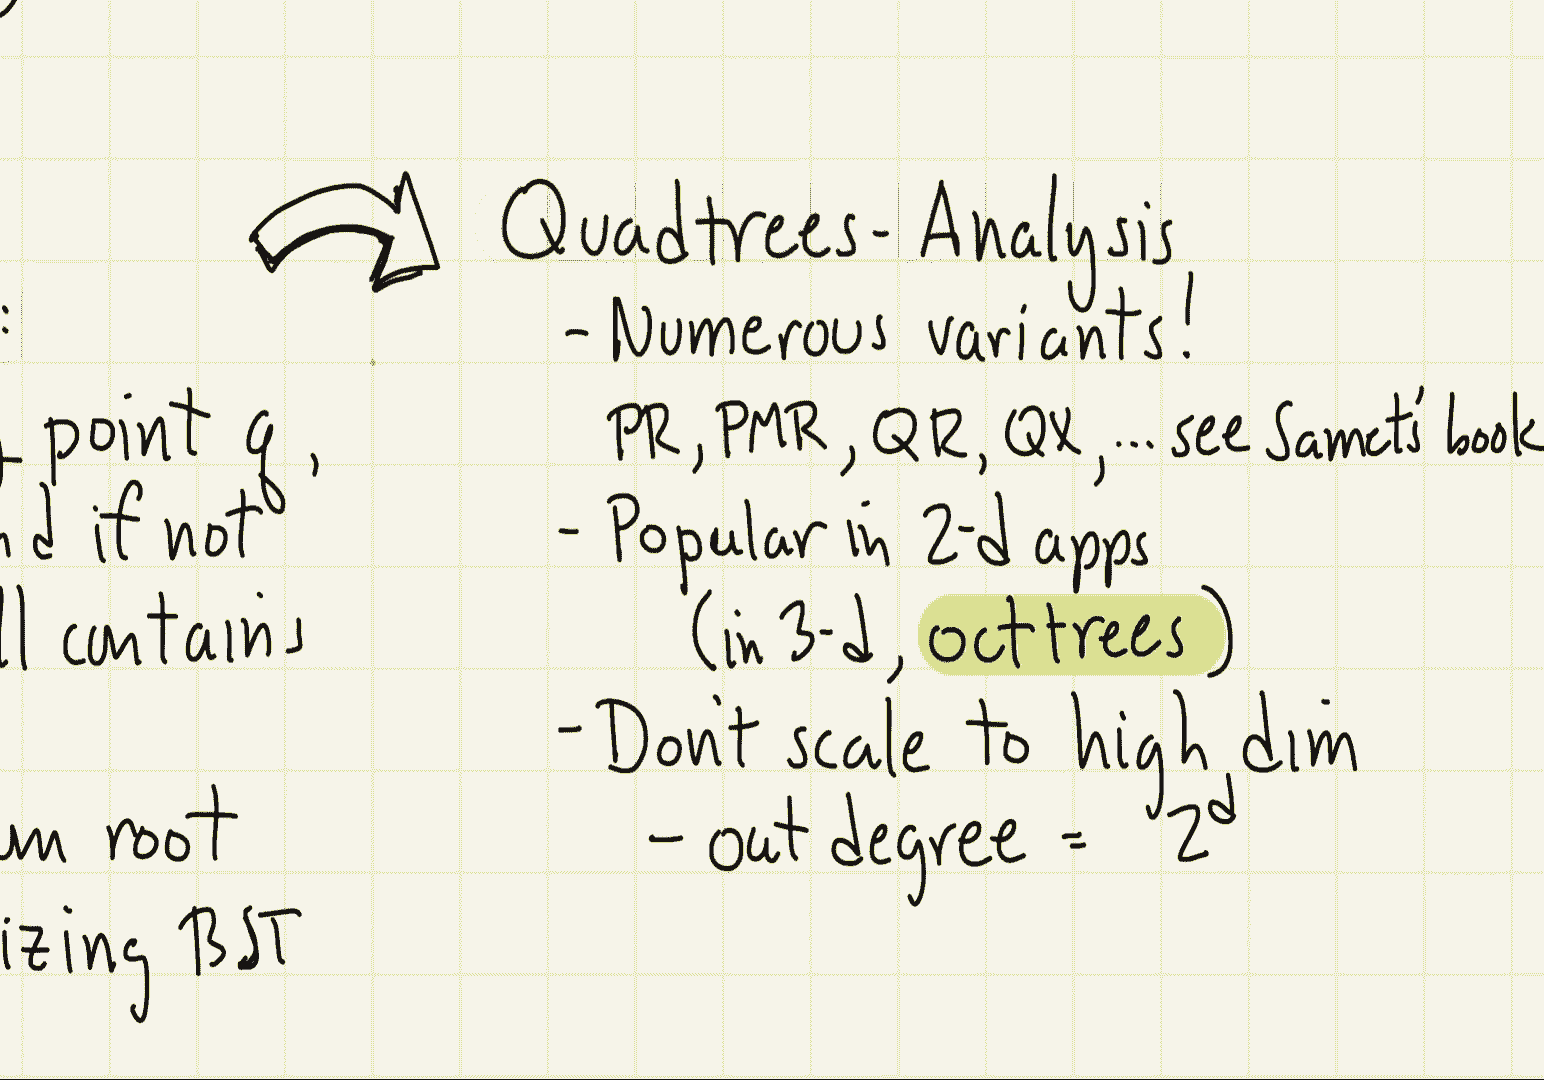 :
point q,
nd if not
ll contains
um root
izing BST
Quadtrees - Analysis
- Numerous variants!
PR, PMR, QR, QX, ... see Samet's book
- Popular in 2-d apps
(in 3-d, octtrees)
- Don't scale to high dim
- out degree = 2^d